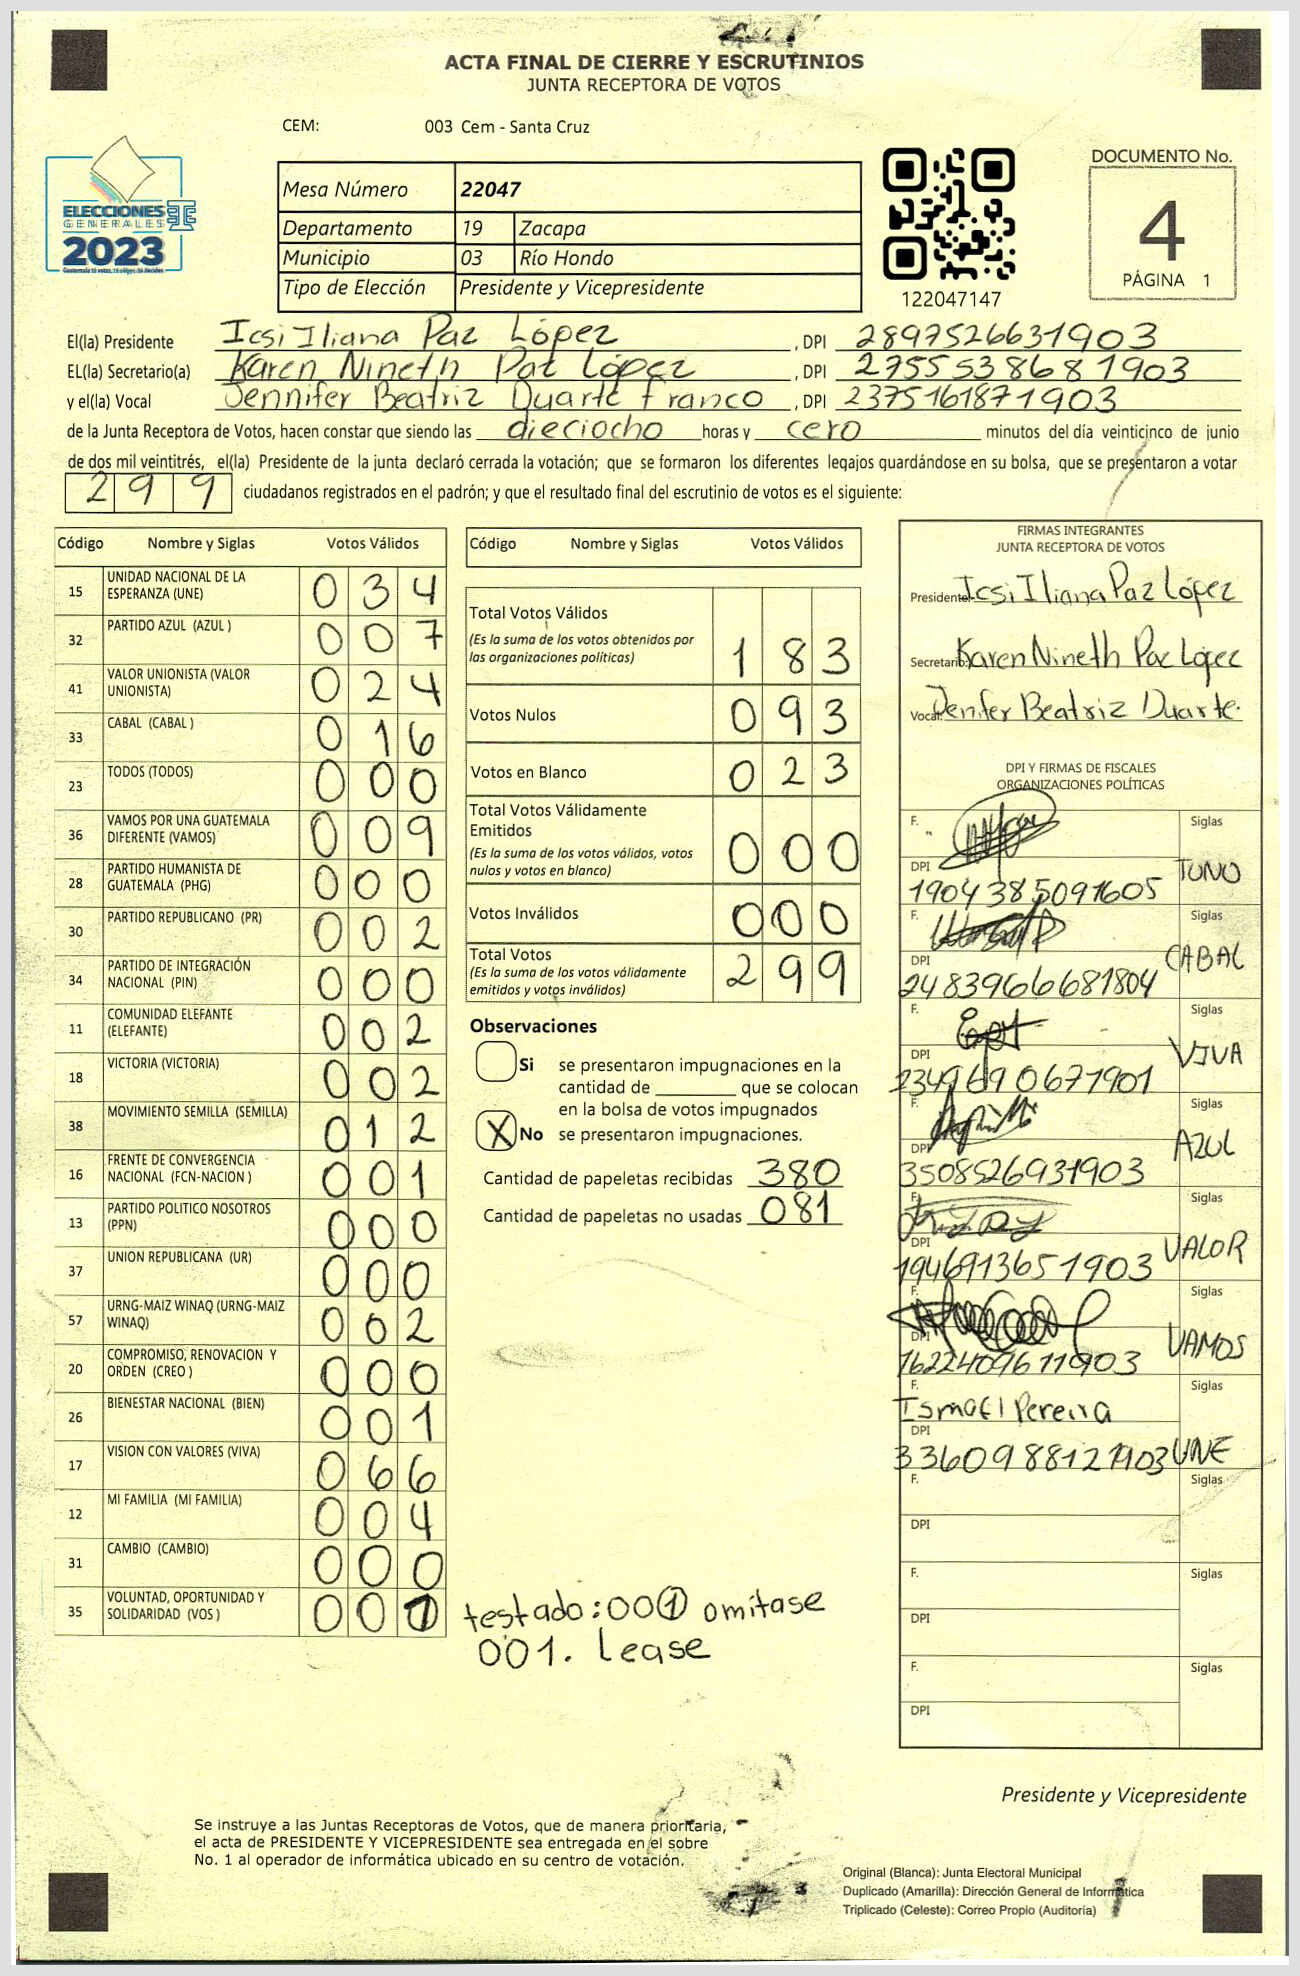 ACTA FINAL DE CIERRE Y ESCRUTINIOS
JUNTA RECEPTORA DE VOTOS
CEM: 003 Cem - Santa Cruz
ELECCIONES
GENERALES
2023
Mesa Número 22047
Departamento 19 Zacapa
Municipio 03 Río Hondo
Tipo de Elección Presidente y Vicepresidente
122047147
DOCUMENTO No.
4
PÁGINA 1
El(la) Presidente Icsi Iliana Paz López, DPI 2897526631903
EL(la) Secretario(a) Karen Nineth Paz López, DPI 2755538681903
y el(la) Vocal Jennifer Beatriz Duarte Franco, DPI 2375161871903
de la Junta Receptora de Votos, hacen constar que siendo las dieciocho horas y cero minutos del día veinticinco de junio
de dos mil veintitrés, el(la) Presidente de la junta declaró cerrada la votación; que se formaron los diferentes legajos quardándose en su bolsa, que se presentaron a votar
299 ciudadanos registrados en el padrón; y que el resultado final del escrutinio de votos es el siguiente:
Código Nombre y Siglas Votos Válidos
15 UNIDAD NACIONAL DE LA ESPERANZA (UNE) 034
32 PARTIDO AZUL (AZUL ) 007
41 VALOR UNIONISTA (VALOR UNIONISTA) 024
33 CABAL (CABAL ) 016
23 TODOS (TODOS) 000
36 VAMOS POR UNA GUATEMALA DIFERENTE (VAMOS) 009
28 PARTIDO HUMANISTA DE GUATEMALA (PHG) 000
30 PARTIDO REPUBLICANO (PR) 002
34 PARTIDO DE INTEGRACIÓN NACIONAL (PIN) 000
11 COMUNIDAD ELEFANTE (ELEFANTE) 002
18 VICTORIA (VICTORIA) 002
38 MOVIMIENTO SEMILLA (SEMILLA) 012
16 FRENTE DE CONVERGENCIA NACIONAL (FCN-NACION ) 001
13 PARTIDO POLITICO NOSOTROS (PPN) 000
37 UNION REPUBLICANA (UR) 000
57 URNG-MAIZ WINAQ (URNG-MAIZ WINAQ) 002
20 COMPROMISO, RENOVACION Y ORDEN (CREO ) 000
26 BIENESTAR NACIONAL (BIEN) 001
17 VISION CON VALORES (VIVA) 066
12 MI FAMILIA (MI FAMILIA) 004
31 CAMBIO (CAMBIO) 000
35 VOLUNTAD, OPORTUNIDAD Y SOLIDARIDAD (VOS ) 001
Código Nombre y Siglas Votos Válidos
Total Votos Válidos
(Es la suma de los votos obtenidos por
las organizaciones politicas) 183
Votos Nulos 093
Votos en Blanco 023
Total Votos Válidamente
Emitidos
(Es la suma de los votos válidos, votos
nulos y votos en blanco) 000
Votos Inválidos 000
Total Votos
(Es la suma de los votos válidamente
emitidos y votos inválidos) 299
Observaciones
Si se presentaron impugnaciones en la
cantidad de ________ que se colocan
en la bolsa de votos impugnados
X No se presentaron impugnaciones.
Cantidad de papeletas recibidas 380
Cantidad de papeletas no usadas 081
testado: 001 omitase
001. lease
FIRMAS INTEGRANTES
JUNTA RECEPTORA DE VOTOS
Presidente: Icsi Iliana Paz López
Secretario: Karen Nineth Paz López
Vocal: Jenifer Beatriz Duarte.
DPI Y FIRMAS DE FISCALES
ORGANIZACIONES POLÍTICAS
F. Siglas
DPI 1904385091605 TUNO
F. Siglas
DPI 2483966681804 CABAL
F. Siglas
DPI 2349690671901 VIVA
F. Siglas
DPI 3508526931903 AZUL
F. Siglas
DPI 1946913651903 VALOR
F. Siglas
DPI 1622409611903 VAMOS
F. Ismael Pereira Siglas
DPI 3360988121903 UNE
F. Siglas
DPI
F. Siglas
DPI
F. Siglas
DPI
Presidente y Vicepresidente
Se instruye a las Juntas Receptoras de Votos, que de manera prioritaria,
el acta de PRESIDENTE Y VICEPRESIDENTE sea entregada en el sobre
No. 1 al operador de informática ubicado en su centro de votación.
Original (Blanca): Junta Electoral Municipal
Duplicado (Amarilla): Dirección General de Informática
Triplicado (Celeste): Correo Propio (Auditoría)